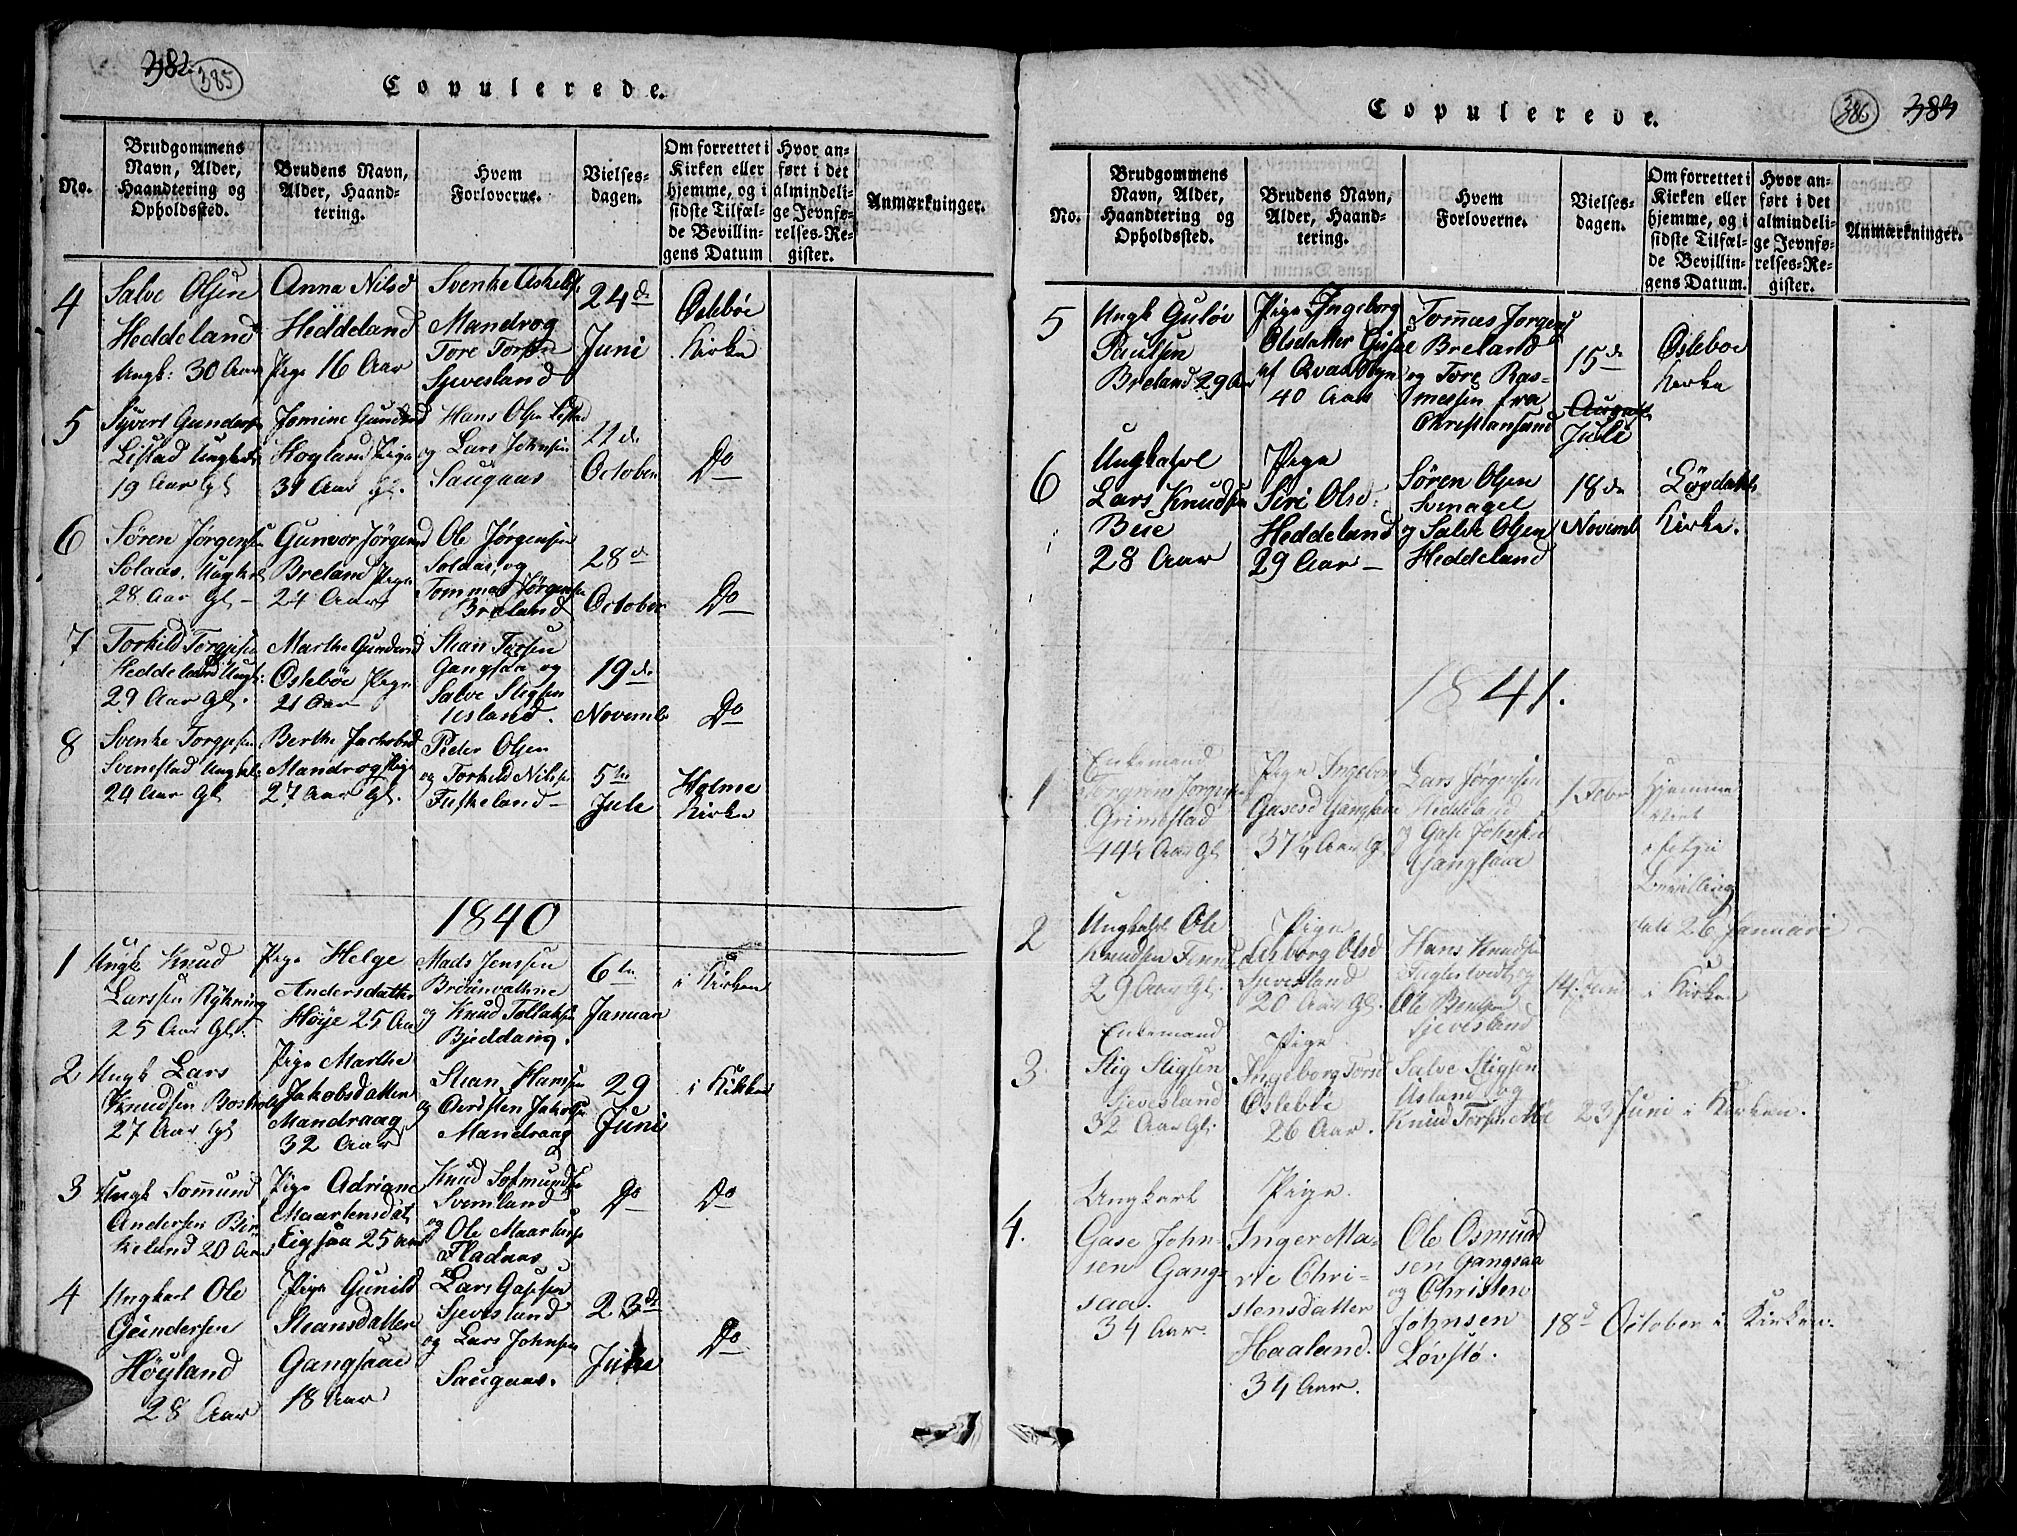 382.
385
Copulerede.
No.
Brudgommens
Navn, Alder,
Haandtering og
Opholdssted.
Brudens Navn,
Alder, Haand-
tering.
Hvem
Forloverne.
Vielses-
dagen.
Om forrettet i
Kirken eller
hjemme, og i
sidste Tilfæl-
de Bevillin-
gens Datum
Hvor an-
ført i det
almindeli-
ge Jevnfø-
relses-Re-
gister.
Anmærkninger.
4
Salve Olsen
Heddeland
Ungk: 30 Aar
Anna Nilsd
Heddeland
Pige 16 Aar
Svenke
Mandrog
Tore Torsen
Sjevesland
24de
Juni
Oslebøe
Kirke
5
Syvert Gunders
Listad Ungk
19 Aar Gl
Jomine Gunders
Hogland Pige
31 Aar Gl.
Hans Olsen Listad
og Lars Johnsen
Saugaas
22de
October
Do
6
Søren Jørgensen
Solaas. Ungkl
28 Aar Gl
Gunvor Jørgensd
Breland Pige
24 Aar
Ole Jørgensen
Solaas, og
Tommes Jørgensen
Breland
28de
October
Do
7
Torkild Torgjsen
Heddeland Ungk:
29 Aar Gl.
Marthe Gundersd
Oslebøe Pige
21 Aar
Stian Torsen
Gangsaa og
Salve Stigsen
Usland.
19de
Novemb
Do
8
Svenke Torgjsen
Svenestad Ungkl
24 Aar Gl
Berthe Jachobsd
Mandrog Pige
27 Aar Gl.
Peder Olsen
og Torkild Nilsen
Fuskeland
5te
Jule
Holme
Kirke
1840
1
Ungk Knud
Larssen Rykning
25 Aar Gl.
Pige Helge
Andersdatter
Høye 25 Aar
Mads Jenssen
og Knud Tollaksen
Bjeddang.
6te
Januari
i Kirken
2
Ungk Lars
Knudsen
27 Aar Gl
Pige Marthe
Jakobsdatter
Mandraag
32 Aar
Stian Hanssen
og Jakobsen
Mandraag
29
Juni
i Kirken
3
Ungk Somund
Andersen Bir
keland 20 Aar
Pige Adriane
Maartensdat
Eigsaa 25 Aar
Knud Sofmundsen
Svenland
og Ole Maartensen
Fladaas
Do
Do
4
Ungkarl Ole
Gundersen
Høyland
28 Aar
Pige Gunild
Stiansdatter
Gangsaae
18 Aar
Lars Gassen
Sjevesland
og Lars Johnsen
Saugaas.
23de
Jule
Do
Copulerede.
386
383
No.
Brudgommens
Navn, Alder,
Haandtering og
Opholdssted.
Brudens Navn,
Alder, Haand-
tering.
Hvem
Forloverne.
Vielses-
dagen.
Om forrettet i
Kirken eller
hjemme, og i
sidste Tilfæl-
de Bevillin-
gens Datum.
Hvor an-
ført i det
almindeli-
ge Jevnfø-
relses-Re-
gister.
Anmærkninger.
5
Ungk Guløv
Paulsen
Breland 29 Aar
Pige Ingeborg
Olsdatter
af
40 Aar
Tommas Jorgens
Breland
og Tore Ras-
messen fra
Christiansand
15de
August
Juli
Osleboe
Kirke
6
Ungkarl
Lars Knudsen
Bue
28 Aar
Pige
Siri Olsd:
Heddeland
29 Aar
Søren Olsen
Svinagel
og Salve Olsen
Heddeland
18de
Novemb
Løvdahls
Kirke.
1841.
1
Enkemand
Torgrem Jørgensen
Grimestad
44½ Aar Gl
Pige Ingebor
Gasesd Gangsaae
37¼ Aar Gl
Lars Jørgensen
Heddeland
og Gase Johnsen
Gangsaae
1 Febr
Hjemme
viet
ifølge
Bevilling
date 26 Januari
2
Ungkarl Ole
Knudsen
29 Aar Gl.
Pige
Aasborg Olsd
Sjevesland
20 Aar Gl.
Hans Knudsen
og
Ole Bentsen
Sjevesland
14 Juni
i Kirken
3
Enkemand
Stig Stigsen
Sjevesland
32 Aar Gl.
Pige
Ingeborg Torsd
Oslebøe
26 Aar.
Salve Stigsen
Usland og
Knud Torsen
23 Juni
i Kirken.
4.
Ungkarl
Gase John-
sen Gang-
saa.
34 Aar.
Pige.
Inger Ma-
rie Chri-
stensdatter
Haaland.
34 Aar.
Ole Osmund
sen Gangsaa
og Christen
Johnsen
Løvstø.
18d October
i Kirken.